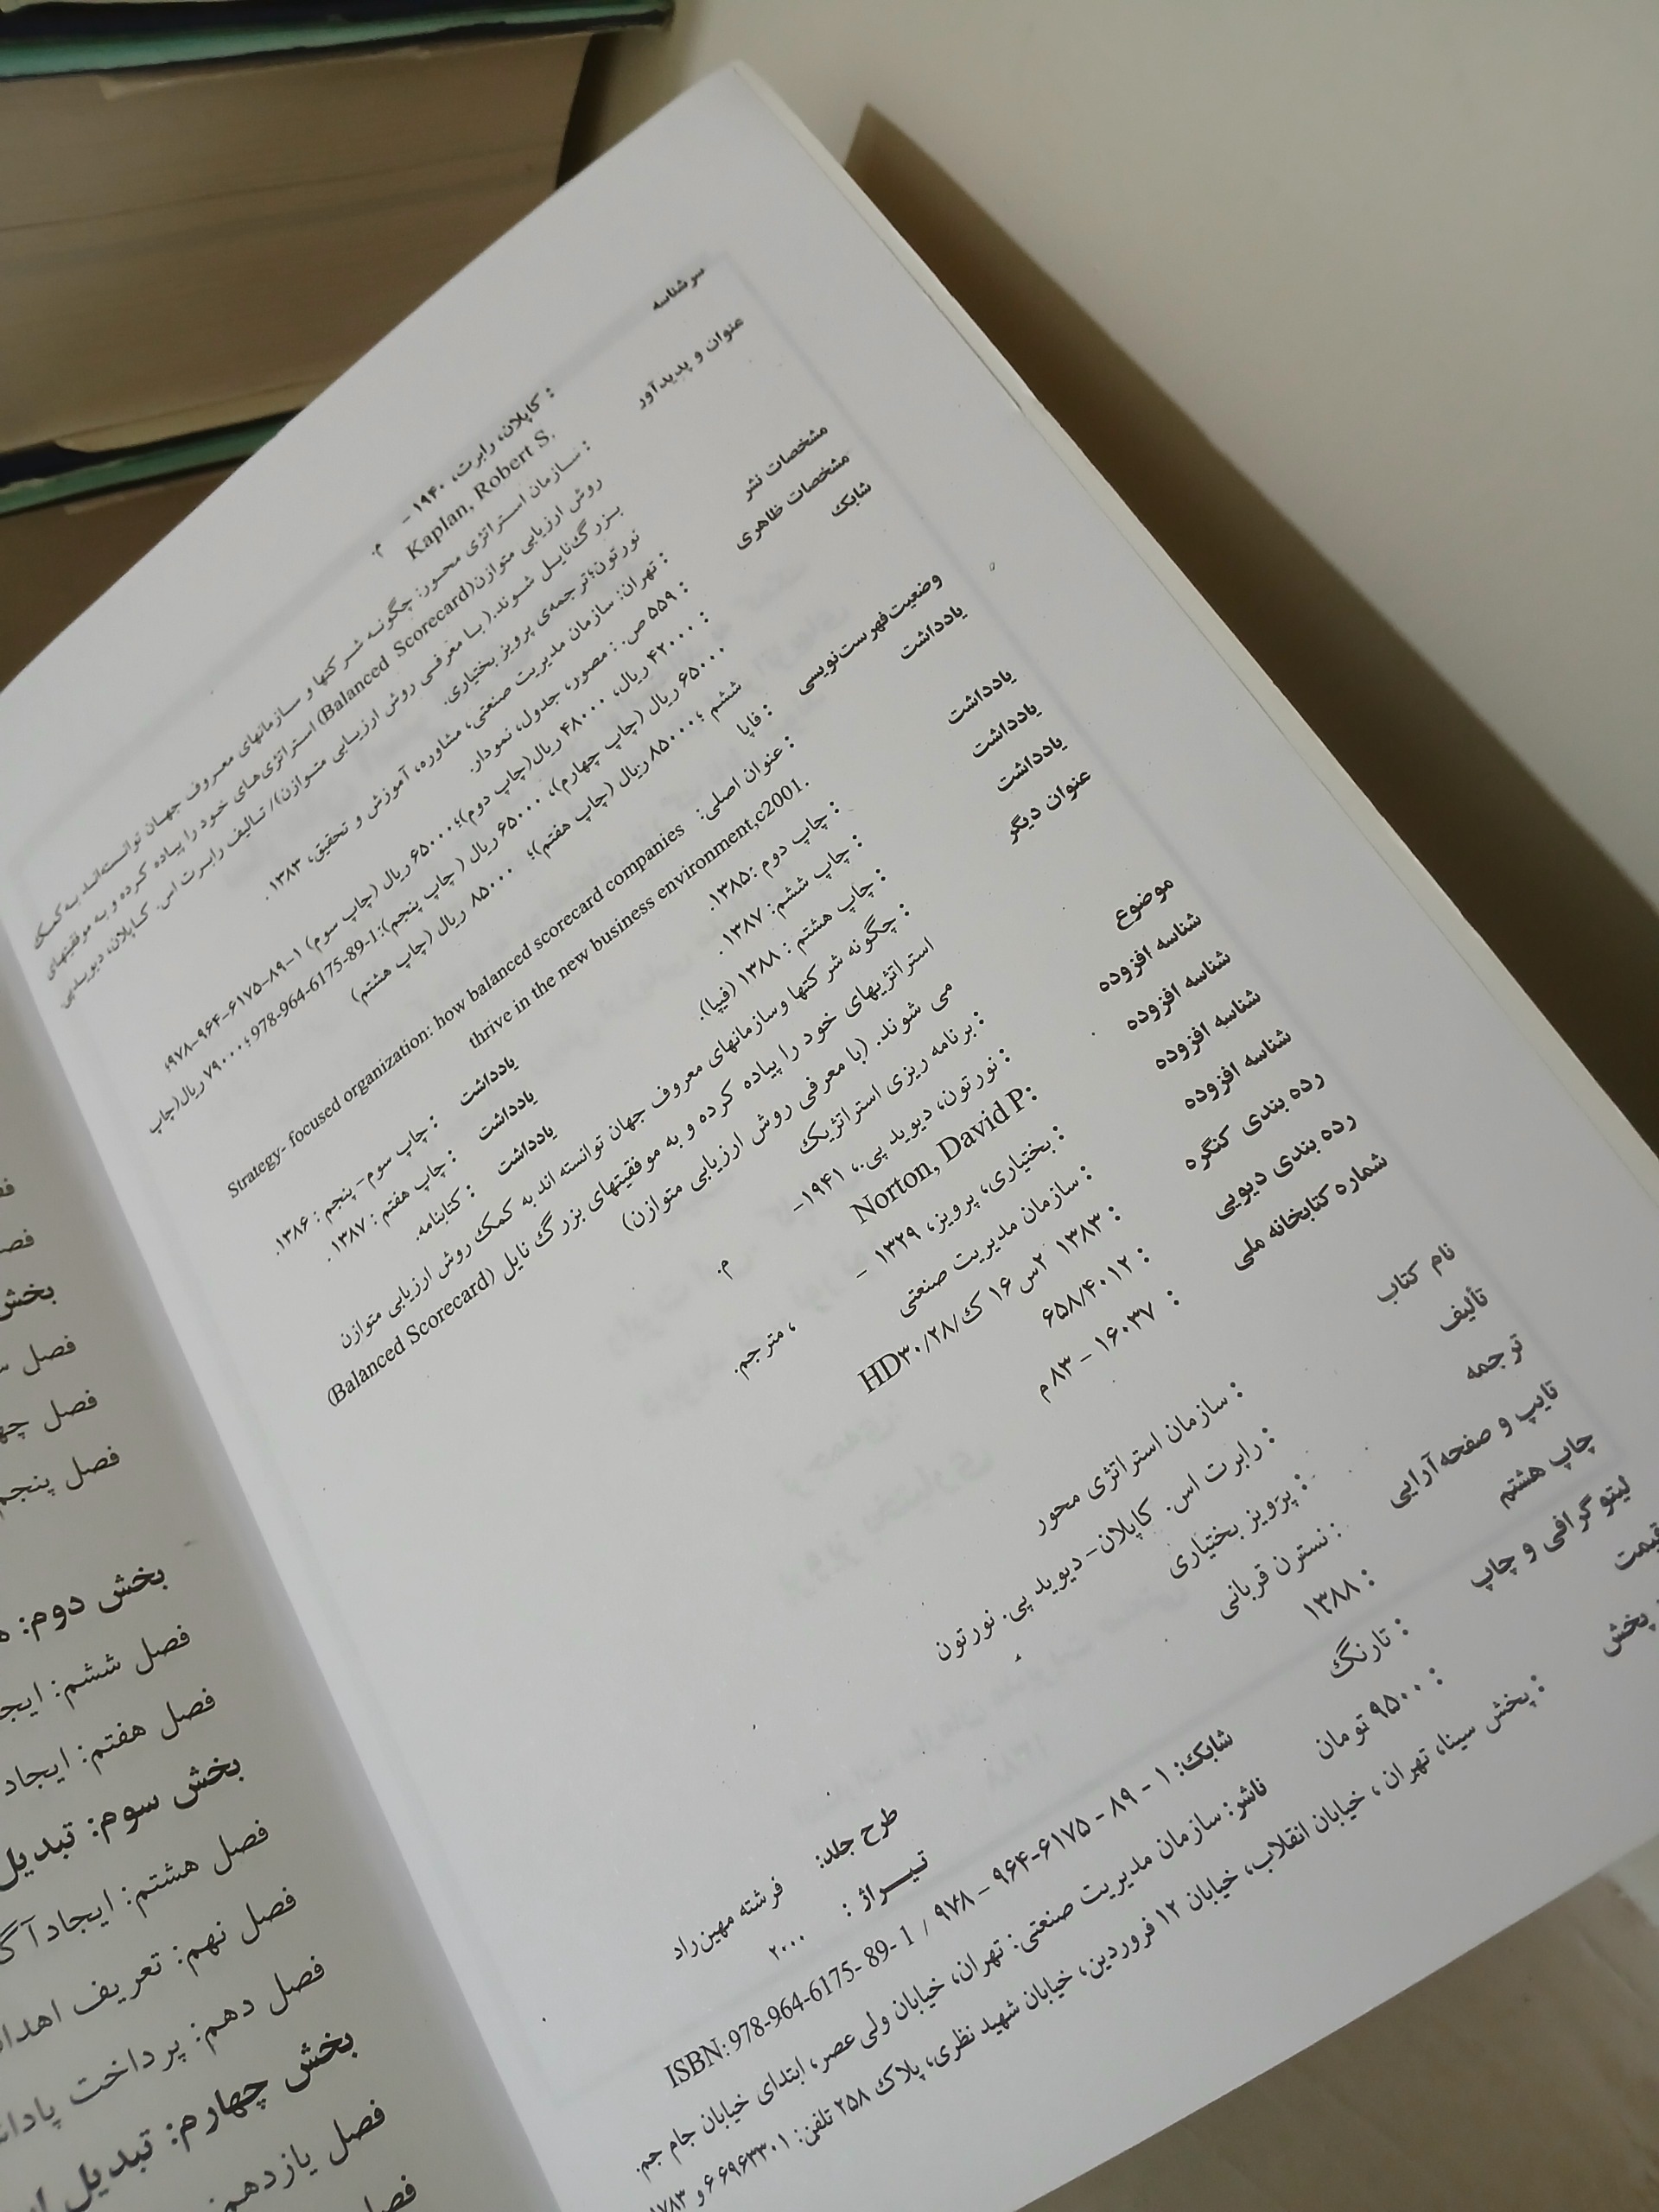 سرشناسه : کاپلان، رابرت، ۱۹۴۰ - م.
Kaplan, Robert S.
عنوان و پدیدآور : سازمان استراتژی محور: چگونه شرکتها و سازمانهای معروف جهان توانسته‌اند به کمک
روش ارزیابی متوازن(Balanced Scorecard) استراتژی‌های خود را پیاده کرده و به موفقیتهای
بزرگ نایل شوند.( با معرفی روش ارزیابی متوازن)/ تالیف رابرت اس. کاپلان، دیوید پی
نورتون؛ترجمه‌ی پرویز بختیاری.
مشخصات نشر : تهران: سازمان مدیریت صنعتی، مشاوره، آموزش و تحقیق، ۱۳۸۳.
مشخصات ظاهری : ۵۵۹ ص. : مصور، جدول، نمودار.
شابک : ۴۲۰۰۰ ریال، ۴۸۰۰۰ ریال(چاپ دوم)؛۶۵۰۰۰ ریال (چاپ سوم) ۱-۸۹-۶۱۷۵-۹۶۴-۹۷۸؛
۶۵۰۰۰ ریال (چاپ چهارم)، ۶۵۰۰۰ ریال (چاپ پنجم):978-964-6175-89-1؛۷۹۰۰۰ ریال(چاپ
ششم ؛ ۸۵۰۰۰ ریال (چاپ هفتم)؛ ۸۵۰۰۰ ریال (چاپ هشتم)
وضعیت فهرست‌نویسی : فاپا
یادداشت : عنوان اصلی: Strategy- focused organization: how balanced scorecard companies
thrive in the new business environment,c2001.
یادداشت : چاپ دوم :۱۳۸۵. یادداشت : چاپ سوم- پنجم : ۱۳۸۶.
یادداشت : چاپ ششم: ۱۳۸۷. یادداشت : چاپ هفتم : ۱۳۸۷.
یادداشت : چاپ هشتم : ۱۳۸۸ (فیپا). یادداشت : کتابنامه.
عنوان دیگر : چگونه شرکتها وسازمانهای معروف جهان توانسته اند به کمک روش ارزیابی متوازن
استراتژیهای خود را پیاده کرده و به موفقیتهای بزرگ نایل (Balanced Scorecard)
می شوند. (با معرفی روش ارزیابی متوازن)
موضوع : برنامه ریزی استراتژیک
شناسه افزوده : نورتون، دیوید پی.، ۱۹۴۱- م.
شناسه افزوده :Norton, David P
شناسه افزوده : بختیاری، پرویز، ۱۳۲۹ - ، مترجم.
شناسه افزوده : سازمان مدیریت صنعتی
رده بندی کنگره : ۱۳۸۳ ۲س ۱۶ ک/HD۳۰/۲۸
رده بندی دیویی : ۶۵۸/۴۰۱۲
شماره کتابخانه ملی : ۱۶۰۳۷ - ۸۳م
نام کتاب : سازمان استراتژی محور
تألیف : رابرت اس. کاپلان- دیوید پی. نورتون
ترجمه : پرویز بختیاری
تایپ و صفحه‌آرایی : نسترن قربانی
چاپ هشتم : ۱۳۸۸
لیتوگرافی و چاپ : تارنگ طرح جلد: فرشته مهین‌راد
قیمت : ۹۵۰۰ تومان تیراژ : ۲۰۰۰
شابک: ۱ - ۸۹ - ۶۱۷۵-۹۶۴ - ۹۷۸ / ISBN: 978-964-6175- 89- 1
ناشر: سازمان مدیریت صنعتی: تهران، خیابان ولی عصر، ابتدای خیابان جام جم.
پخش : پخش سینا، تهران ، خیابان انقلاب، خیابان ۱۲ فروردین، خیابان شهید نظری، پلاک ۲۵۸ تلفن: ۶۶۹۶۳۳۰۱ و
بخش
فصل
فصل
فصل پنجم
بخش دوم:
فصل ششم: ایجا
فصل هفتم: ایجاد
بخش سوم: تبدیل
فصل هشتم: ایجاد آگ
فصل نهم: تعریف اهدا
فصل دهم: پرداخت پادا
بخش چهارم: تبدیل
فصل یازدهم:
فصل